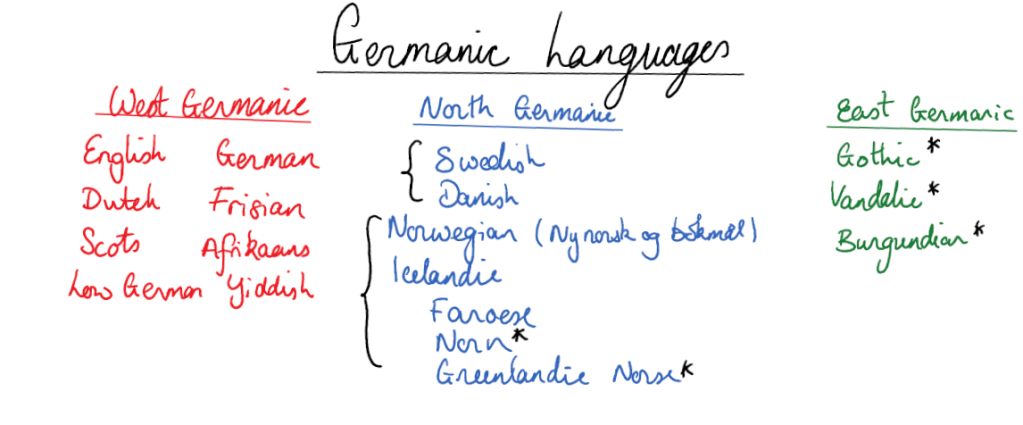 Germanic Languages
West Germanic
English German
Dutch Frisian
Scots Afrikaans
Low German Yiddish
North Germanic
Swedish
Danish
Norwegian (Nynorsk og bokmål)
Icelandic
Faroese
Norn*
Greenlandic Norse*
East Germanic
Gothic*
Vandalic*
Burgundian*